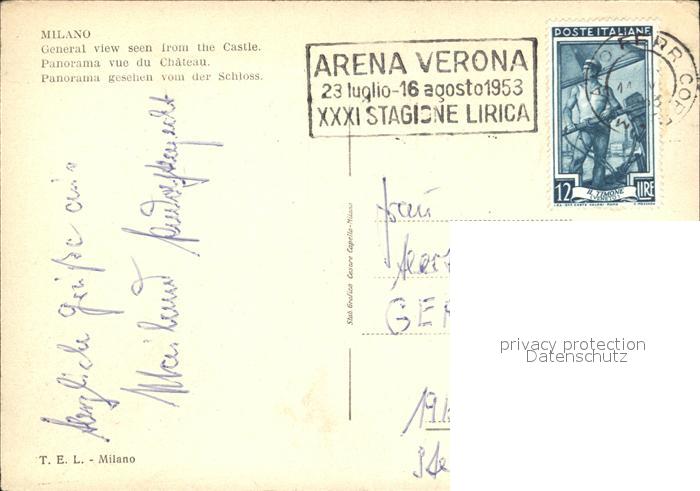 MILANO
General view seen from the Castle.
Panorama vue du Château.
Panorama gesehen vom der Schloss.
ARENA VERONA
23 luglio-16 agosto 1953
XXXI STAGIONE LIRICA
POSTE ITALIANE
12 IL TIMONE LIRE
Herzliche Grüße aus
Mailand
Stab. Grafico Cesare Capello-Milano
Frau
GER
privacy protection
Datenschutz
T. E. L. - Milano